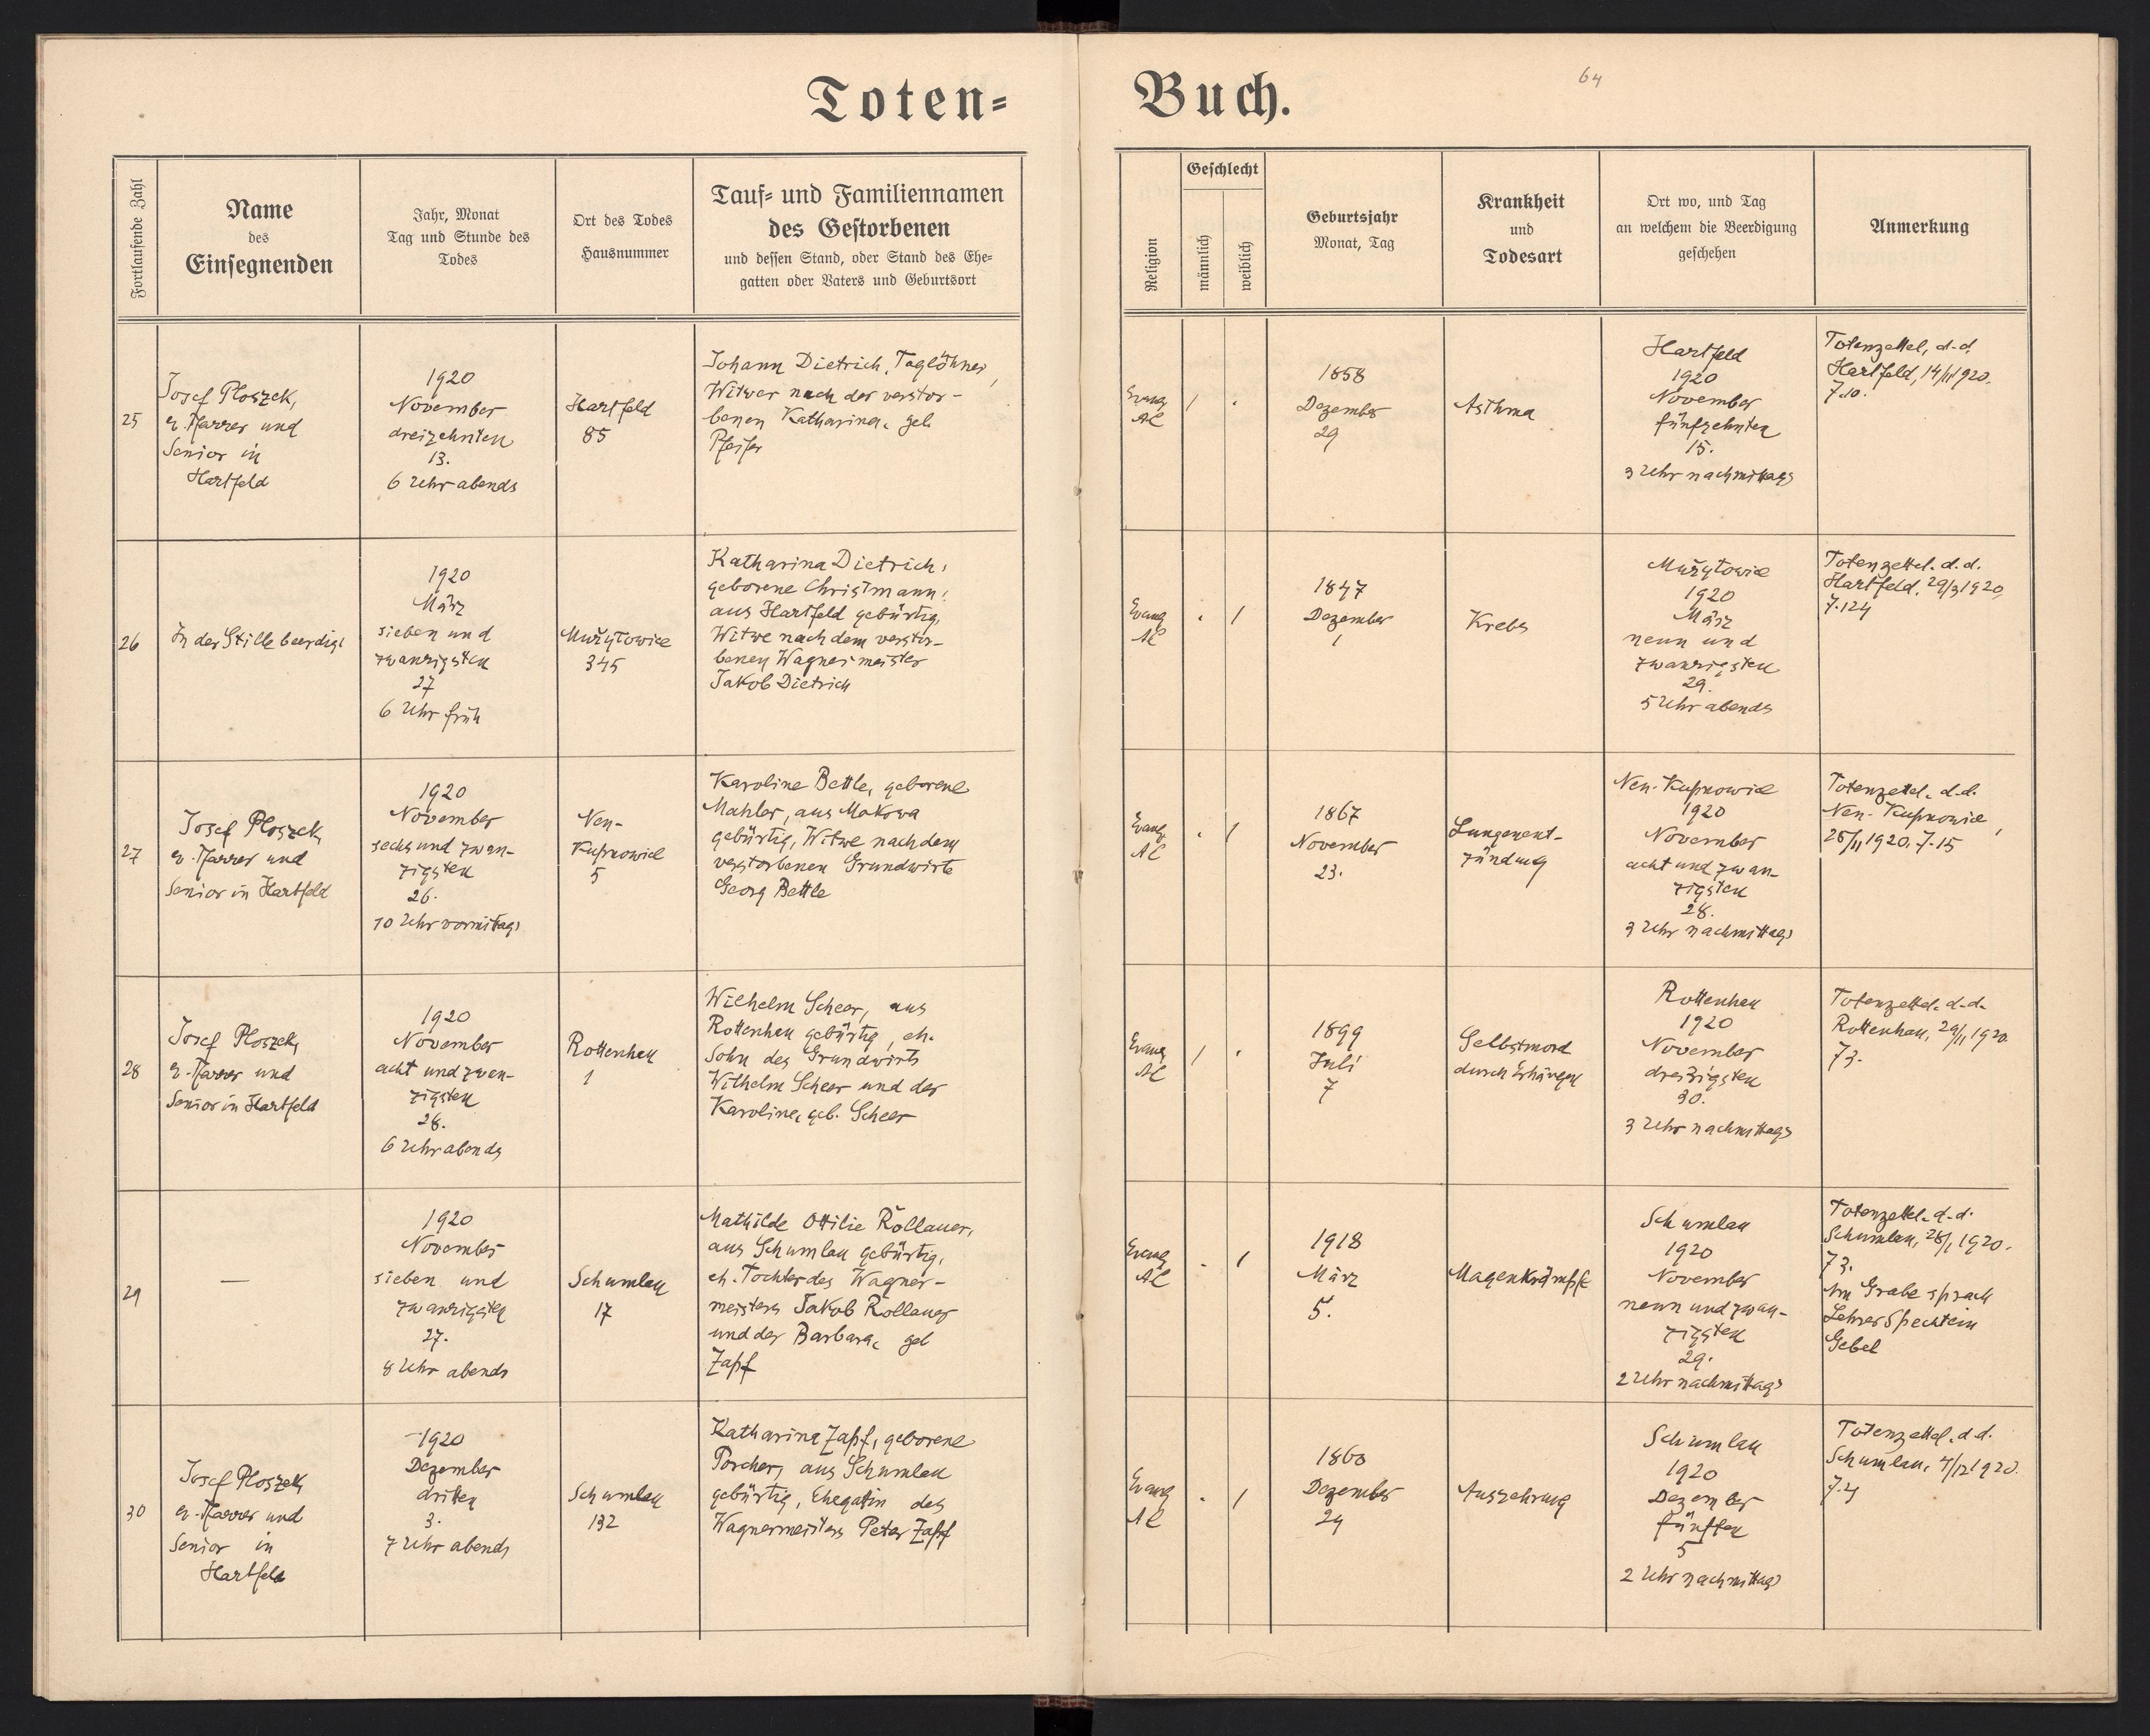 Toten-
Buch.
64
Fortlaufende Zahl
Name
des
Einsegnenden
Jahr, Monat
Tag und Stunde des
Todes
Ort des Todes
Hausnummer
Tauf- und Familiennamen
des Gestorbenen
und dessen Stand, oder Stand des Ehe-
gatten oder Vaters und Geburtsort
Religion
Geschlecht
männlich
weiblich
Geburtsjahr
Monat, Tag
Krankheit
und
Todesart
Ort wo, und Tag
an welchem die Beerdigung
geschehen
Anmerkung
25
Josef Ploszek,
ev. Pfarrer und
Senior in
Hartfeld
1920
November
dreizehnten
13.
6 Uhr abends
Hartfeld
85
Johann Dietrich, Taglöhner,
Witwer nach der verstor-
benen Katharina, geb
Pfeifer
Evang
AC
1858
Dezember
29
Asthma
Hartfeld
1920
November
fünfzehnten
15.
3 Uhr nachmittags
Totenzettel, d.d.
Hartfeld, 14/11 1920.
26
In der Stille beerdigt
1920
März
sieben und
zwanzigsten
27
6 Uhr früh
Mužyłowice
345
Katharina Dietrich,
geborene Christmann,
aus Hartfeld gebürtig,
Witwe nach dem verstor-
benen Wagnermeister
Jakob Dietrich
Evang
AC
1847
Dezember
1
Krebs
Mužyłowice
1920
März
neun und
zwanzigsten
29.
5 Uhr abends
Totenzettel. d.d.
Hartfeld, 29/3 1920,
Z. 124
27
Josef Ploszek,
ev. Pfarrer und
Senior in Hartfeld
1920
November
sechs und zwan-
zigsten
26.
10 Uhr vormittags
Neu-
Kupnowice
5
Karoline Bettle, geborene
Mahler, aus Makowa
gebürtig, Witwe nach dem
verstorbenen Grundwirte
Georg Bettle
Evang.
AC
1867
November
23.
Lungenent-
zündung
Neu-Kupnowice
1920
November
acht und zwan-
zigsten
28.
3 Uhr nachmittags
Totenzettel. d.d.
Neu-Kupnowice,
26/11 1920. Z. 15
28
Josef Ploszek,
ev. Pfarrer und
Senior in Hartfeld
1920
November
acht und zwan-
zigsten
28.
6 Uhr abends
Rottenhan
1
Wilhelm Scheer, aus
Rottenhan gebürtig, eh.
Sohn des Grundwirts
Wilhelm Scheer und der
Karoline, geb. Scheer
Evang
AC
1899
Juli
7
Selbstmord
durch Erhängen
Rottenhan
1920
November
dreißigsten
30.
3 Uhr nachmittags
Totenzettel. d.d.
Rottenhan, 29/11 1920.
Z 3.
29
—
1920
November
sieben und
zwanzigsten
27.
8 Uhr abends
Schumlau
17
Mathilde Ottilie Rollauer,
aus Schumlau gebürtig,
eh. Tochter des Wagner-
meisters Jakob Rollauer
und der Barbara, geb
Zapf
Evang
AC
1918
März
5.
Magenkrämpfe
Schumlau
1920
November
neun und zwan-
zigsten
29.
2 Uhr nachmittags
Totenzettel. d.d.
Schumlau, 28/11 1920.
Z 3.
Am Grabe sprach
Lehrer
Gebel
30
Josef Ploszek
ev. Pfarrer und
Senior in
Hartfeld
1920
Dezember
dritten
3.
7 Uhr abends
Schumlau
132
Katharina Zapf, geborene
Porcher, aus Schumlau
gebürtig, Ehegattin des
Wagnermeisters Peter Zapf
Evang
AC
1860
Dezember
24
Auszehrung
Schumlau
1920
Dezember
fünften
5
2 Uhr nachmittags
Totenzettel. d.d.
Schumlau, 4/12 1920.
Z. 4